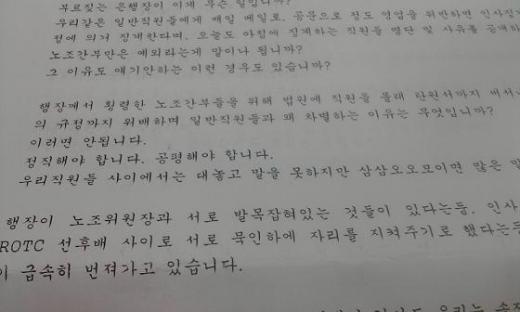 부르짖는 은행장이 이게 무슨 일입니까?
우리같은 일반직원들에게 매일 메일로, 공문으로 정도 영업을 위반하면 인사
정에 의거 징계한다며, 오늘도 아침에 징계하는 직원들 명단 및 사유를 공개하
노조간부만은 예외라는게 말이나 됩니까?
그 이유도 얘기안하는 이런 경우도 있습니까?
행장께서 횡령한 노조간부들을 위해 법원에 직원들 몰래 탄원서까지 써서
의 규정까지 위배하며 일반직원들과 왜 차별하는 이유는 무엇입니까?
이러면 안됩니다.
정직해야 합니다. 공평해야 합니다.
우리직원들 사이에서는 대놓고 말을 못하지만 삼삼오오모이면 많은
행장이 노조위원장과 서로 발목잡혀있는 것들이 있다는등. 인사
ROTC 선후배 사이로 서로 묵인하에 자리를 지켜주기로 했다는등
이 급속히 번져가고 있습니다.